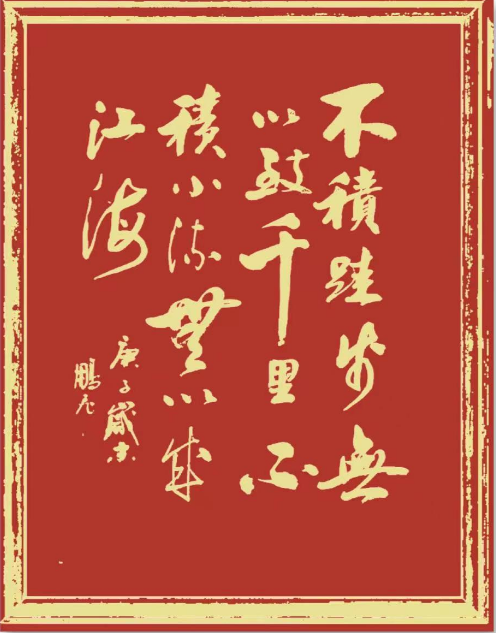 不積跬步無
以致千里不
積小流無以成
江海
庚子歲末
鵬